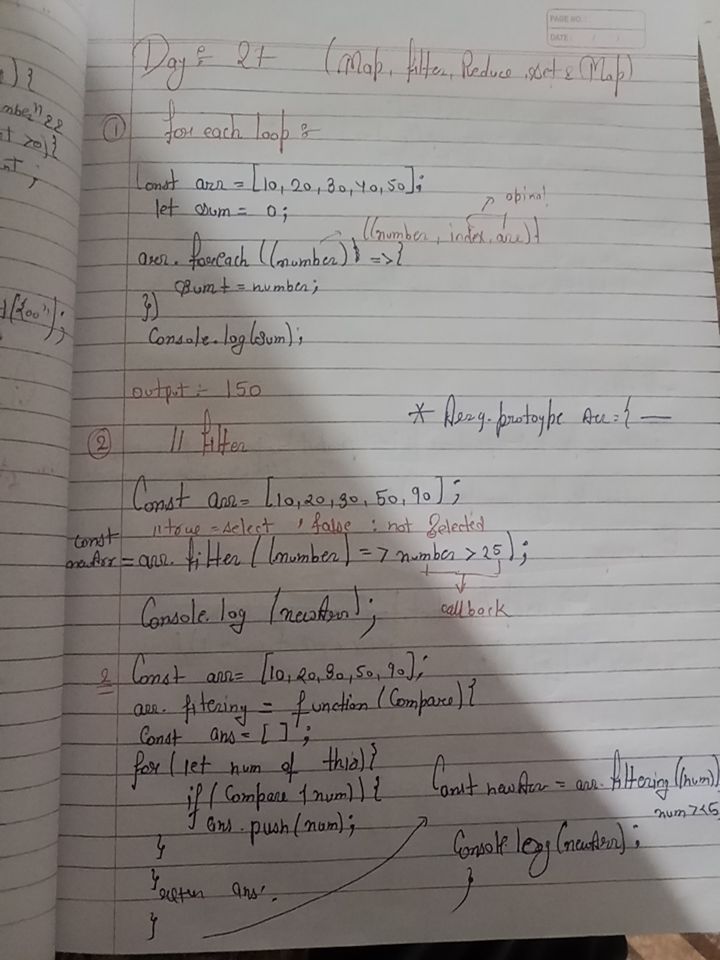 PAGE NO.:
DATE: / /
Day :- 27 (Map, filter, Reduce, set & Map)
① for each loop :-
Const arr = [10, 20, 30, 40, 50];
let sum = 0;
opinal
((number, index, arr)}
arr. foreach ((number) => {
sum + = number;
})
Console.log(sum);
output :- 150
* Array.protoype Arr = { —
② // filter
Const arr = [10, 20, 30, 50, 90];
// true = select, false : not Selected
const newArr = arr. filter ((number) => number > 25);
callback
Console. log (newArr);
2 Const arr = [10, 20, 30, 50, 90];
arr. filtering = function (Compare) {
Const ans = [ ] ;
for (let num of this) {
if (Compare (num)) {
ans. push (num);
}
}
return ans;
}
Const newArr = arr. filtering ((num)
num > 25
Console log (newArr);
}
) {
nt ;